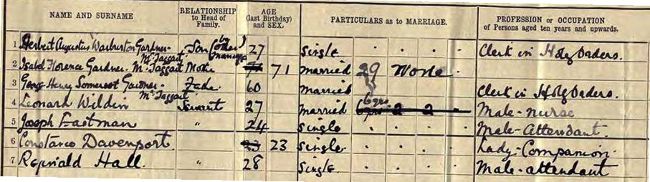 NAME AND SURNAME
RELATIONSHIP to Head of Family.
AGE (last Birthday) and SEX.
PARTICULARS as to MARRIAGE.
PROFESSION or OCCUPATION of Persons aged ten years and upwards.
1 Herbert Augustus Warburton Gardner-McTaggart Son (by order of marriage) 27 single Clerk in Holy Orders.
2 Isabel Florence Gardner-McTaggart Mother 71 married 29 None
3 George Henry Somerset Gardner-McTaggart 60 married Clerk in Holy Orders.
4 Leonard Wildin Servant 27 married 6 2 2 Male-nurse
5 Joseph Eastman " 24 single Male-Attendant.
6 Constance Davenport. " 23 single Lady-Companion
7 Reginald Hall. " 28 Single. Male-attendant